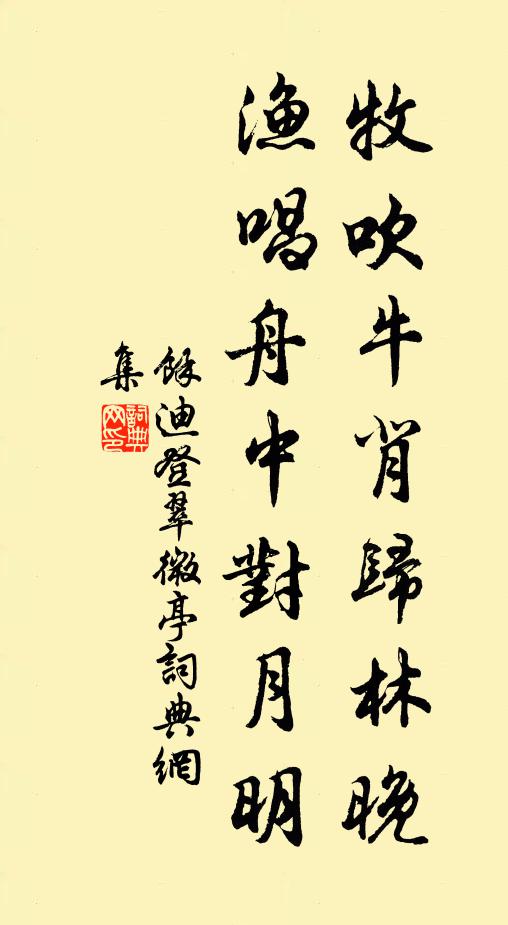 牧吹牛背歸林晚
漁唱舟中對月明
餘迪登翠微亭詞典網
集
詞典
网印